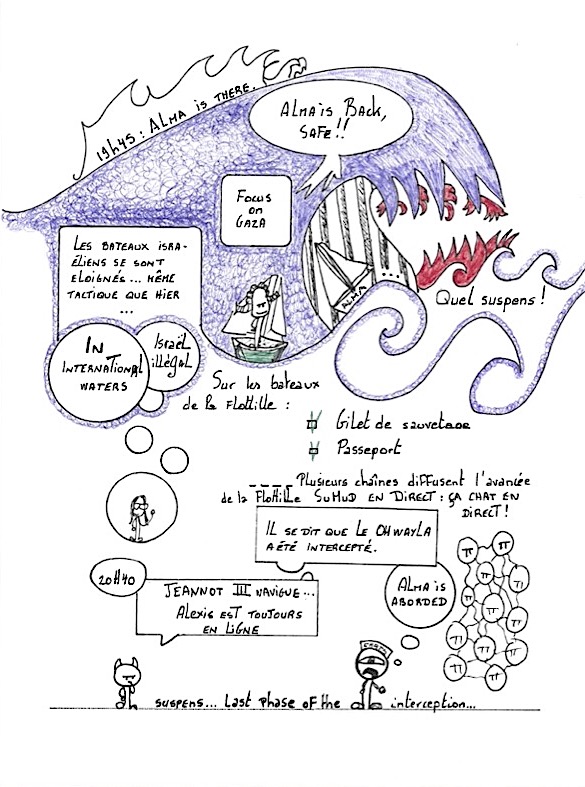 19h45 : ALMA IS THERE.
ALMA is BACK,
SAFE !!
FOCUS
ON
GAZA
LES BATEAUX ISRA-
ÉLIENS SE SONT
ELOIGNÉS... MÊME
TACTIQUE QUE HIER
...
ALMA
...
Quel suspens !
IN
INTERNATIONAL
WATERS
Israël
illégal
Sur les bateaux
de la Flottille :
Gilet de sauvetage
Passeport
Plusieurs chaînes diffusent l'avancée
de la Flottille SUMUD EN DIRECT : ÇA CHAT EN
DIRECT !
IL SE DIT QUE LE OHWAYLA
A ÉTÉ INTERCEPTÉ.
20H40
JEANNOT III NAVIGUE...
ALEXIS EST TOUJOURS
EN LIGNE
ALMA IS
ABORDED
suspens... Last phase of the interception...